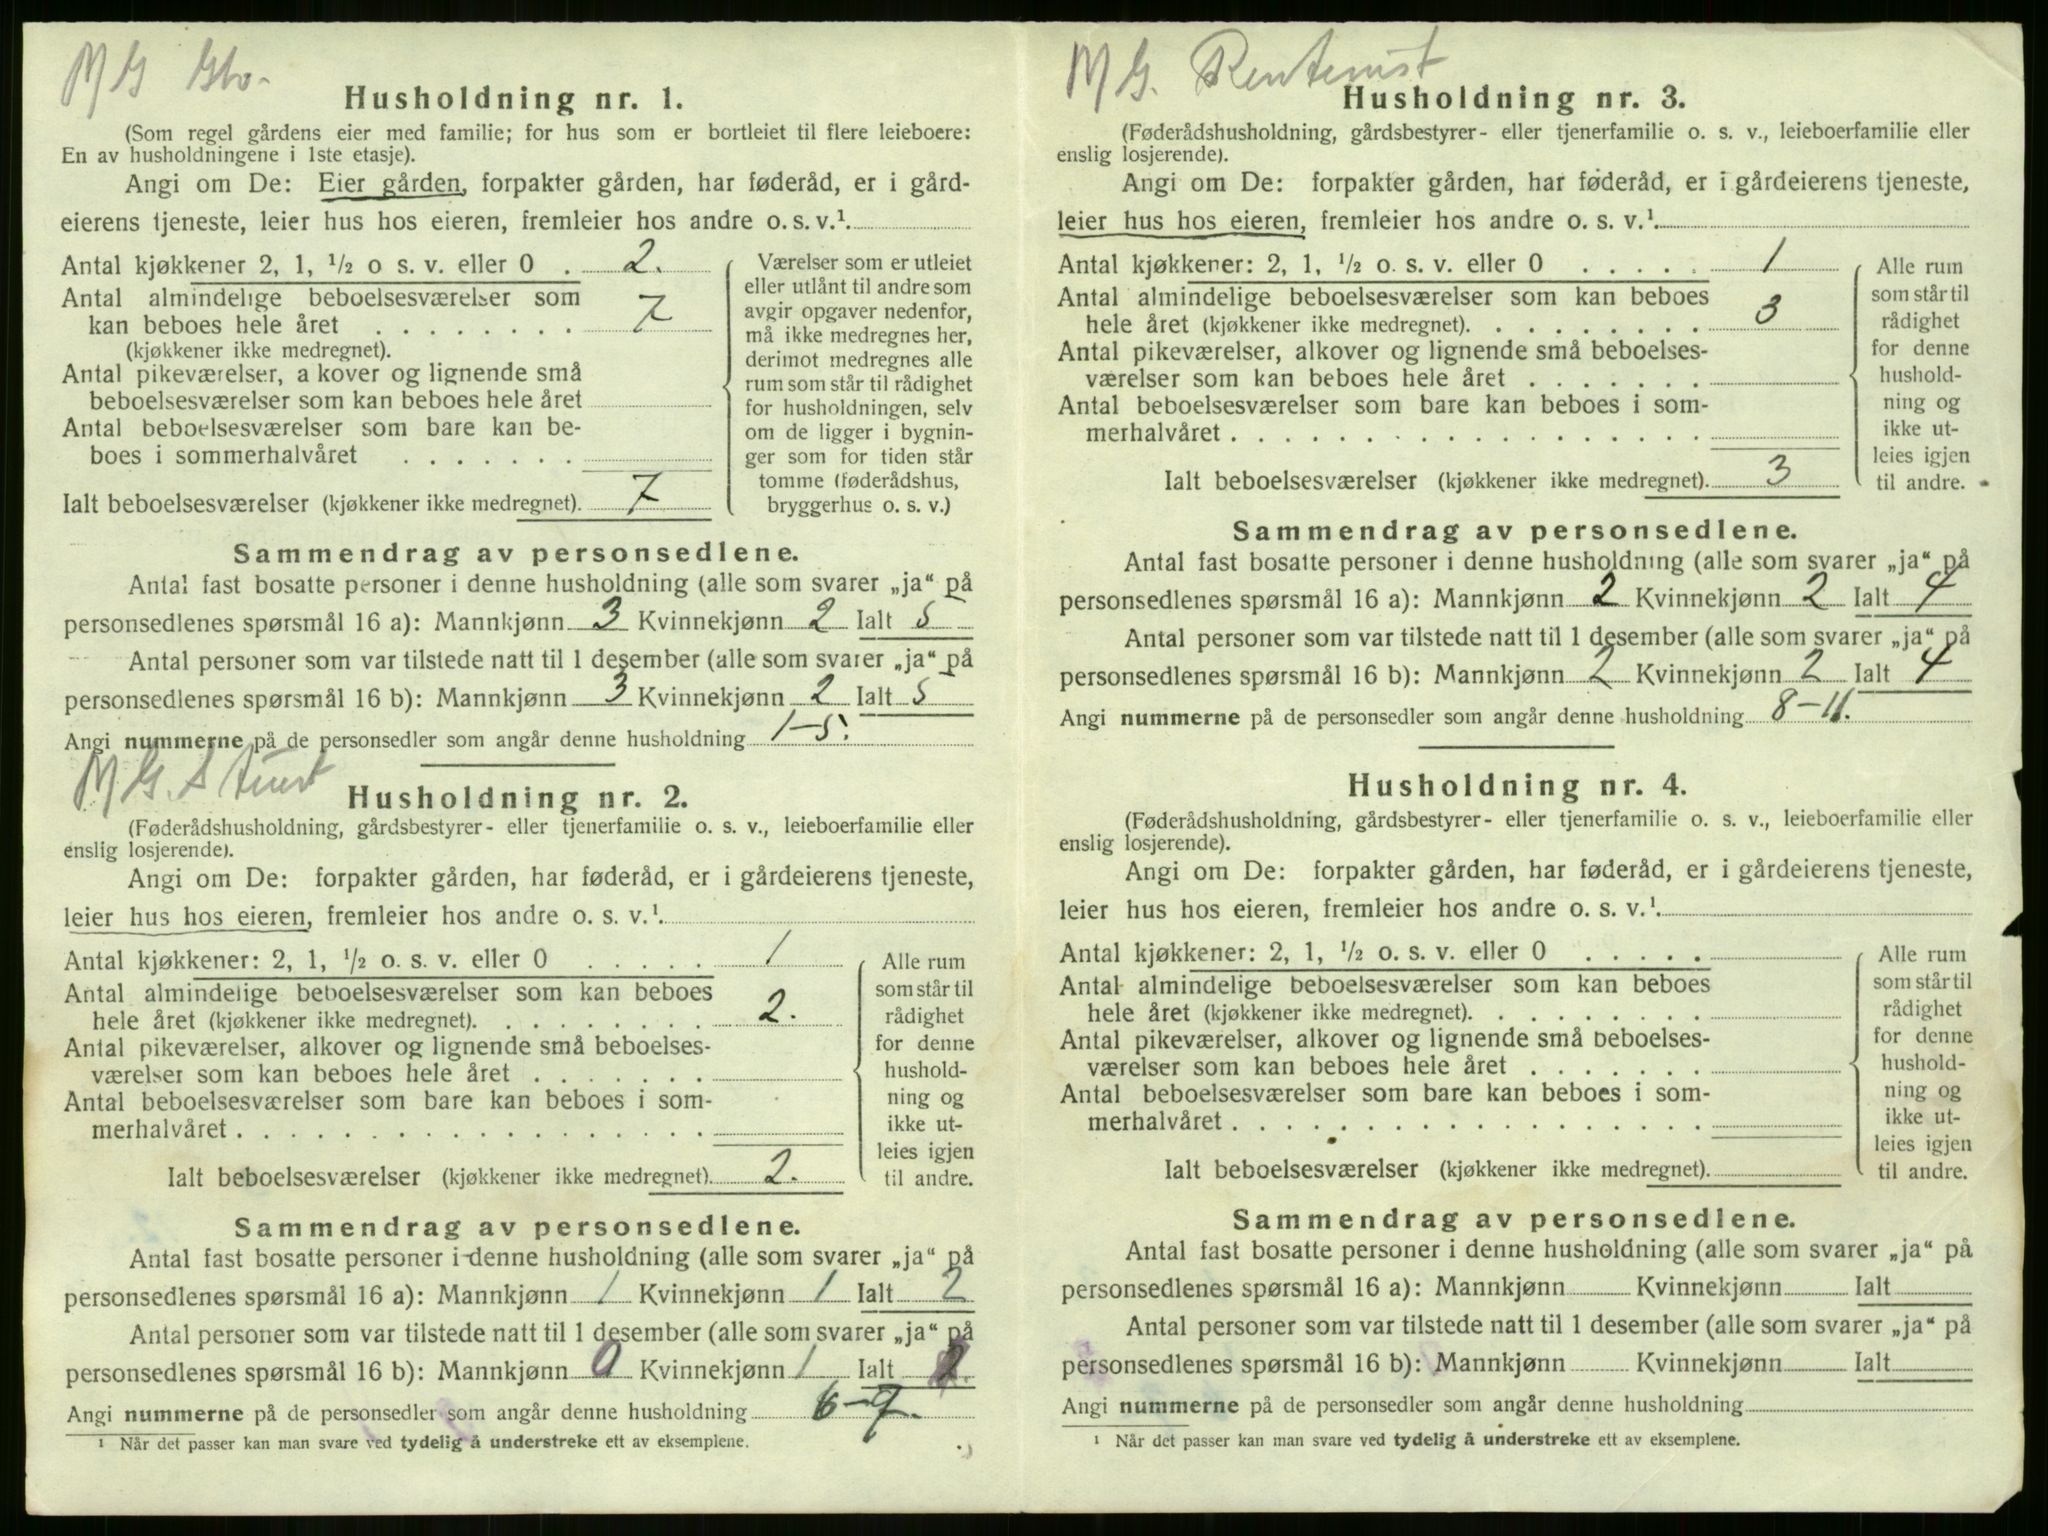 M G Gbr.
Husholdning nr. 1.
(Som regel gårdens eier med familie; for hus som er bortleiet til flere leieboere:
En av husholdningene i 1ste etasje).
Angi om De: Eier gården, forpakter gården, har føderåd, er i gård-
eierens tjeneste, leier hus hos eieren, fremleier hos andre o. s. v.¹.
Antal kjøkkener 2, 1, ½ o s. v. eller 0 . 2.
Antal almindelige beboelsesværelser som
kan beboes hele året . . . . . . . . 7
(kjøkkener ikke medregnet).
Antal pikeværelser, a kover og lignende små
beboelsesværelser som kan beboes hele året
Antal beboelsesværelser som bare kan be-
boes i sommerhalvåret . . . . . . .
Ialt beboelsesværelser (kjøkkener ikke medregnet). 7
Værelser som er utleiet
eller utlånt til andre som
avgir opgaver nedenfor,
må ikke medregnes her,
derimot medregnes alle
rum som står til rådighet
for husholdningen, selv
om de ligger i bygnin-
ger som for tiden står
tomme (føderådshus,
bryggerhus o. s. v.)
Sammendrag av personsedlene.
Antal fast bosatte personer i denne husholdning (alle som svarer „ja“ på
personsedlenes spørsmål 16 a): Mannkjønn 3 Kvinnekjønn 2 Ialt 5
Antal personer som var tilstede natt til 1 desember (alle som svarer „ja“ på
personsedlenes spørsmål 16 b): Mannkjønn 3 Kvinnekjønn 2 Ialt 5
Angi nummerne på de personsedler som angår denne husholdning 1-5.
M G.
Husholdning nr. 2.
(Føderådshusholdning, gårdsbestyrer- eller tjenerfamilie o. s. v., leieboerfamilie eller
enslig losjerende).
Angi om De: forpakter gården, har føderåd, er i gårdeierens tjeneste,
leier hus hos eieren, fremleier hos andre o. s. v.¹.
Antal kjøkkener: 2, 1, ½ o. s. v. eller 0 . . . . . 1
Antal almindelige beboelsesværelser som kan beboes
hele året (kjøkkener ikke medregnet). . . . . . . . . 2.
Antal pikeværelser, alkover og lignende små beboelses-
værelser som kan beboes hele året . . . . . . .
Antal beboelsesværelser som bare kan beboes i som-
merhalvåret . . . . . . . . . . . . . . . . . .
Ialt beboelsesværelser (kjøkkener ikke medregnet). 2.
Alle rum
som står til
rådighet
for denne
hushold-
ning og
ikke ut-
leies igjen
til andre.
Sammendrag av personsedlene.
Antal fast bosatte personer i denne husholdning (alle som svarer „ja“ på
personsedlenes spørsmål 16 a): Mannkjønn 1 Kvinnekjønn 1 Ialt 2
Antal personer som var tilstede natt til 1 desember (alle som svarer „ja“ på
personsedlenes spørsmål 16 b): Mannkjønn 0 Kvinnekjønn 1 Ialt
Angi nummerne på de personsedler som angår denne husholdning 6-7.
¹ Når det passer kan man svare ved tydelig å understreke ett av eksemplene.
M G. Rentenist
Husholdning nr. 3.
(Føderådshusholdning, gårdsbestyrer- eller tjenerfamilie o. s. v., leieboerfamilie eller
enslig losjerende).
Angi om De: forpakter gården, har føderåd, er i gårdeierens tjeneste,
leier hus hos eieren, fremleier hos andre o. s. v.¹.
Antal kjøkkener: 2, 1, ½ o. s. v. eller 0 . . . . . 1
Antal almindelige beboelsesværelser som kan beboes
hele året (kjøkkener ikke medregnet). . . . . . . . . 3
Antal pikeværelser, alkover og lignende små beboelses-
værelser som kan beboes hele året . . . . . . .
Antal beboelsesværelser som bare kan beboes i som-
merhalvåret . . . . . . . . . . . . . . . . . .
Ialt beboelsesværelser (kjøkkener ikke medregnet). 3
Alle rum
som står til
rådighet
for denne
hushold-
ning og
ikke ut-
leies igjen
til andre.
Sammendrag av personsedlene.
Antal fast bosatte personer i denne husholdning (alle som svarer „ja“ på
personsedlenes spørsmål 16 a): Mannkjønn 2 Kvinnekjønn 2 Ialt 4
Antal personer som var tilstede natt til 1 desember (alle som svarer „ja“ på
personsedlenes spørsmål 16 b): Mannkjønn 2 Kvinnekjønn 2 Ialt 4
Angi nummerne på de personsedler som angår denne husholdning 8-11.
Husholdning nr. 4.
(Føderådshusholdning, gårdsbestyrer- eller tjenerfamilie o. s. v., leieboerfamilie eller
enslig losjerende).
Angi om De: forpakter gården, har føderåd, er i gårdeierens tjeneste,
leier hus hos eieren, fremleier hos andre o. s. v.¹.
Antal kjøkkener: 2, 1, ½ o. s. v. eller 0 . . . . .
Antal almindelige beboelsesværelser som kan beboes
hele året (kjøkkener ikke medregnet). . . . . . . . .
Antal pikeværelser, alkover og lignende små beboelses-
værelser som kan beboes hele året . . . . . . .
Antal beboelsesværelser som bare kan beboes i som-
merhalvåret . . . . . . . . . . . . . . . . . .
Ialt beboelsesværelser (kjøkkener ikke medregnet).
Alle rum
som står til
rådighet
for denne
hushold-
ning og
ikke ut-
leies igjen
til andre.
Sammendrag av personsedlene.
Antal fast bosatte personer i denne husholdning (alle som svarer „ja“ på
personsedlenes spørsmål 16 a): Mannkjønn Kvinnekjønn Ialt
Antal personer som var tilstede natt til 1 desember (alle som svarer „ja“ på
personsedlenes spørsmål 16 b): Mannkjønn Kvinnekjønn Ialt
Angi nummerne på de personsedler som angår denne husholdning
¹ Når det passer kan man svare ved tydelig å understreke ett av eksemplene.